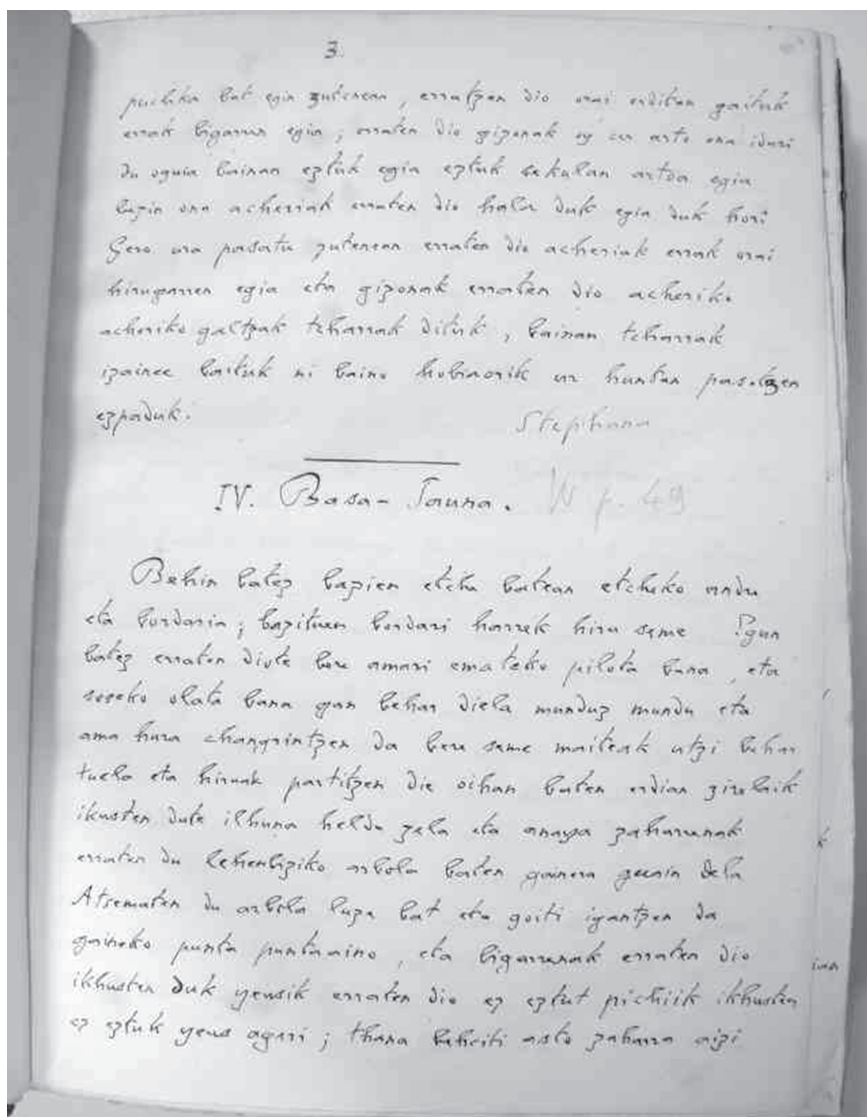 3.
puchka bat egin zutenean, erraiten dio orai erditan gaituk
errak bigarren egia; erraten dio gizonak ez cer arto ona iduri
du oguia bainan eztuk egia eztuk sekulan artoa ogia
bezin ona acheriak erraten dio hala duk egia duk hori
Gero ura pasatu zutenean erraten dio acheriak errak orai
hirugarren egia eta gizonak erraten dio acheriko
acheriko galtzak tcharrak dituk, bainan tcharrak
izainee baituk ni baino hobiaorik ur huntan pasatzen
ezpaduk.
Stephana
IV. Basa-Jauna. W p. 49
Behin batez bazien etche batean etcheko andre
eta bordaria; bazituen bordari harrek hiru seme Egun
batez erraten diote bere amari emateko pilota bana, eta
soseko olata bana gan behar diela munduz mundu eta
ama hura changrintzen da bere seme maiteak utzi behar
tuela eta hiruak partitzen die oihan baten erdian zirelaik
ikusten dute ilhuna heldu zela eta anaya zaharrenak
erraten du lehenbiziko arbola baten gainera guanin dela
Atsematen du arbola luze bat eta goiti igantzen da
gaineko punta puntaraino, eta bigarrenak erraten dio
ikhusten duk yeusik erraten dio ez eztut pichiik ikhusten
ez eztuk yeus ageri; thana beheiti asto zaharra aizi